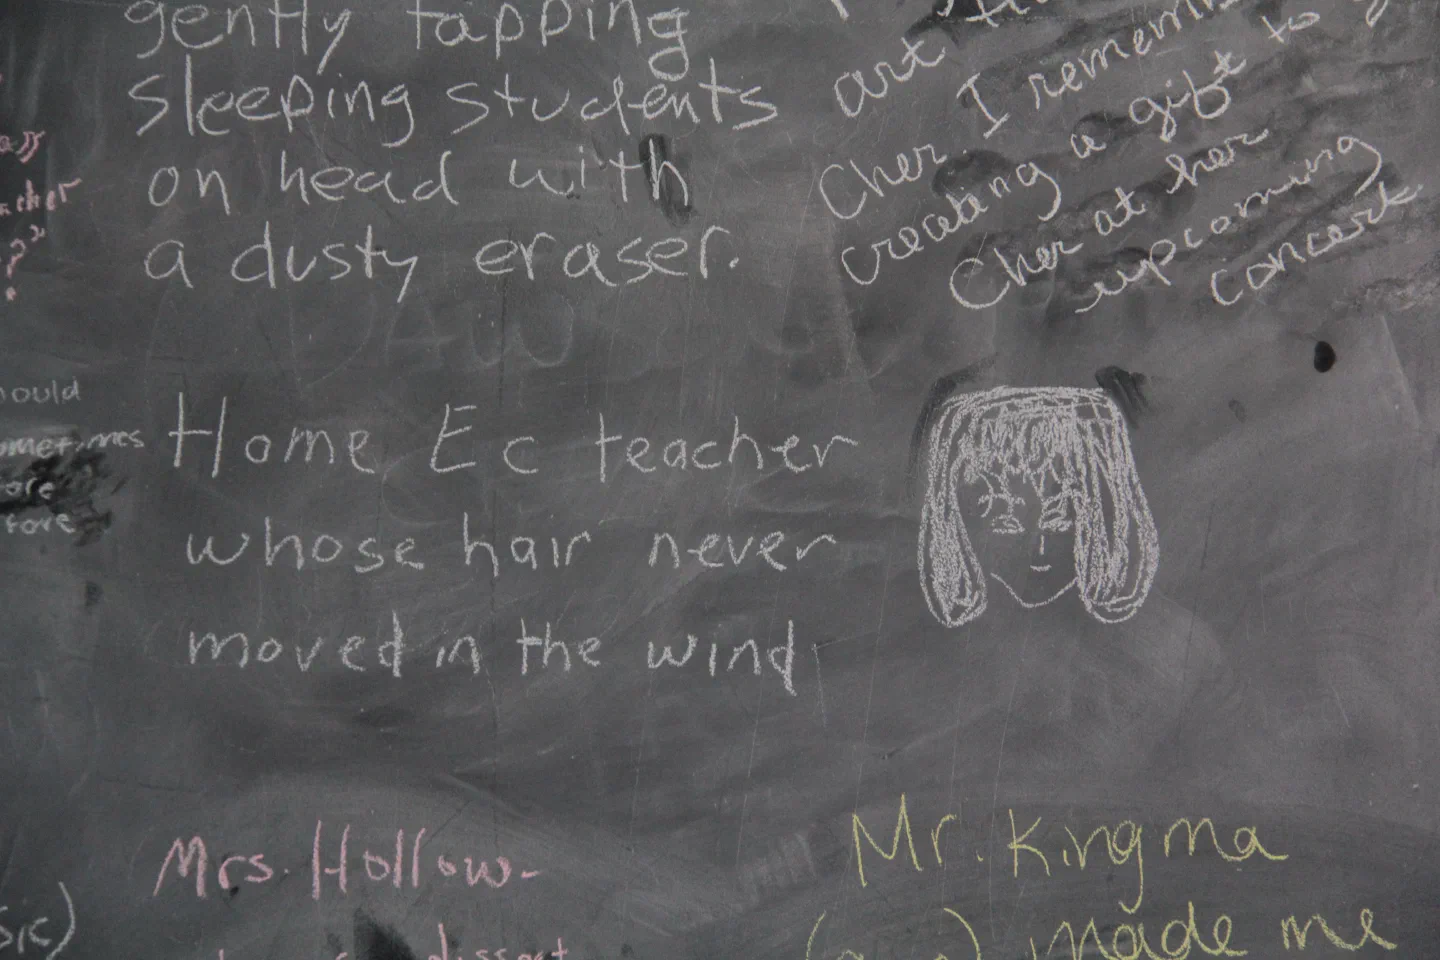 gently tapping
sleeping students
on head with
a dusty eraser.
art
Cher. I remem
creating a gift to
Cher at her
upcoming
concert.
Home Ec teacher
whose hair never
moved in the wind
Mrs. Hollow-
dissect
Mr. Kingma
made me